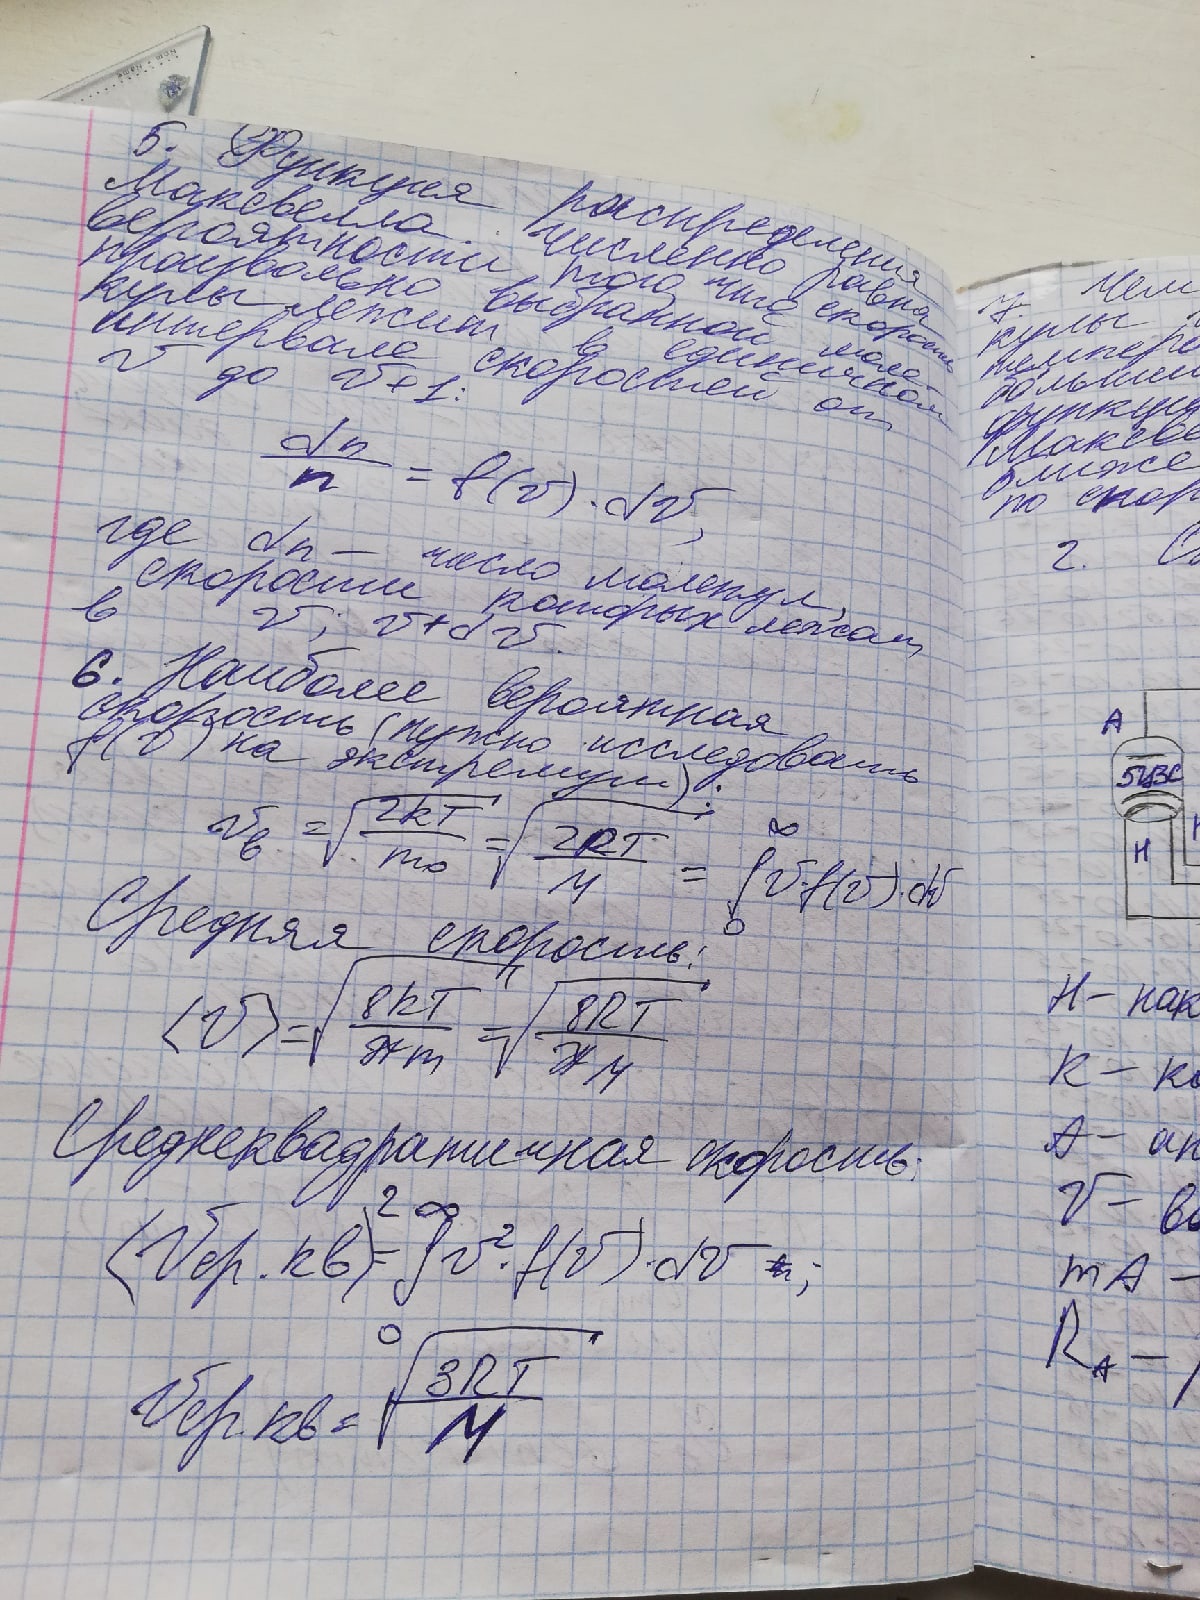 5. Функция распределения
Максвелла численно равна
вероятности того что скорость
произвольно выбранной моле-
кулы лежит в единичном
интервале скоростей от
v до v+1:
dn/n = f(v)·dv,
где dn — число молекул,
скорости которых лежат
в v; v+dv.
6. Наиболее вероятная
скорость (нужно исследовать
f(v) на экстремум):
vв = √(2kT/m₀) = √(2RT/M) = ∫₀^∞ v·f(v)·dv
Средняя скорость:
⟨v⟩ = √(8kT/πm) = √(8RT/πM)
Среднеквадратичная скорость:
⟨vср.кв⟩² = ∫₀^∞ v²·f(v)·dv;
vср.кв = √(3RT/M)
7. Чем
кулы
темпере
больши
функци
Максве
ближе
по скор
2. Сх
A
5Ц3С
Н
Н — нак
К — ка
А — ан
V — во
mA —
R_A —